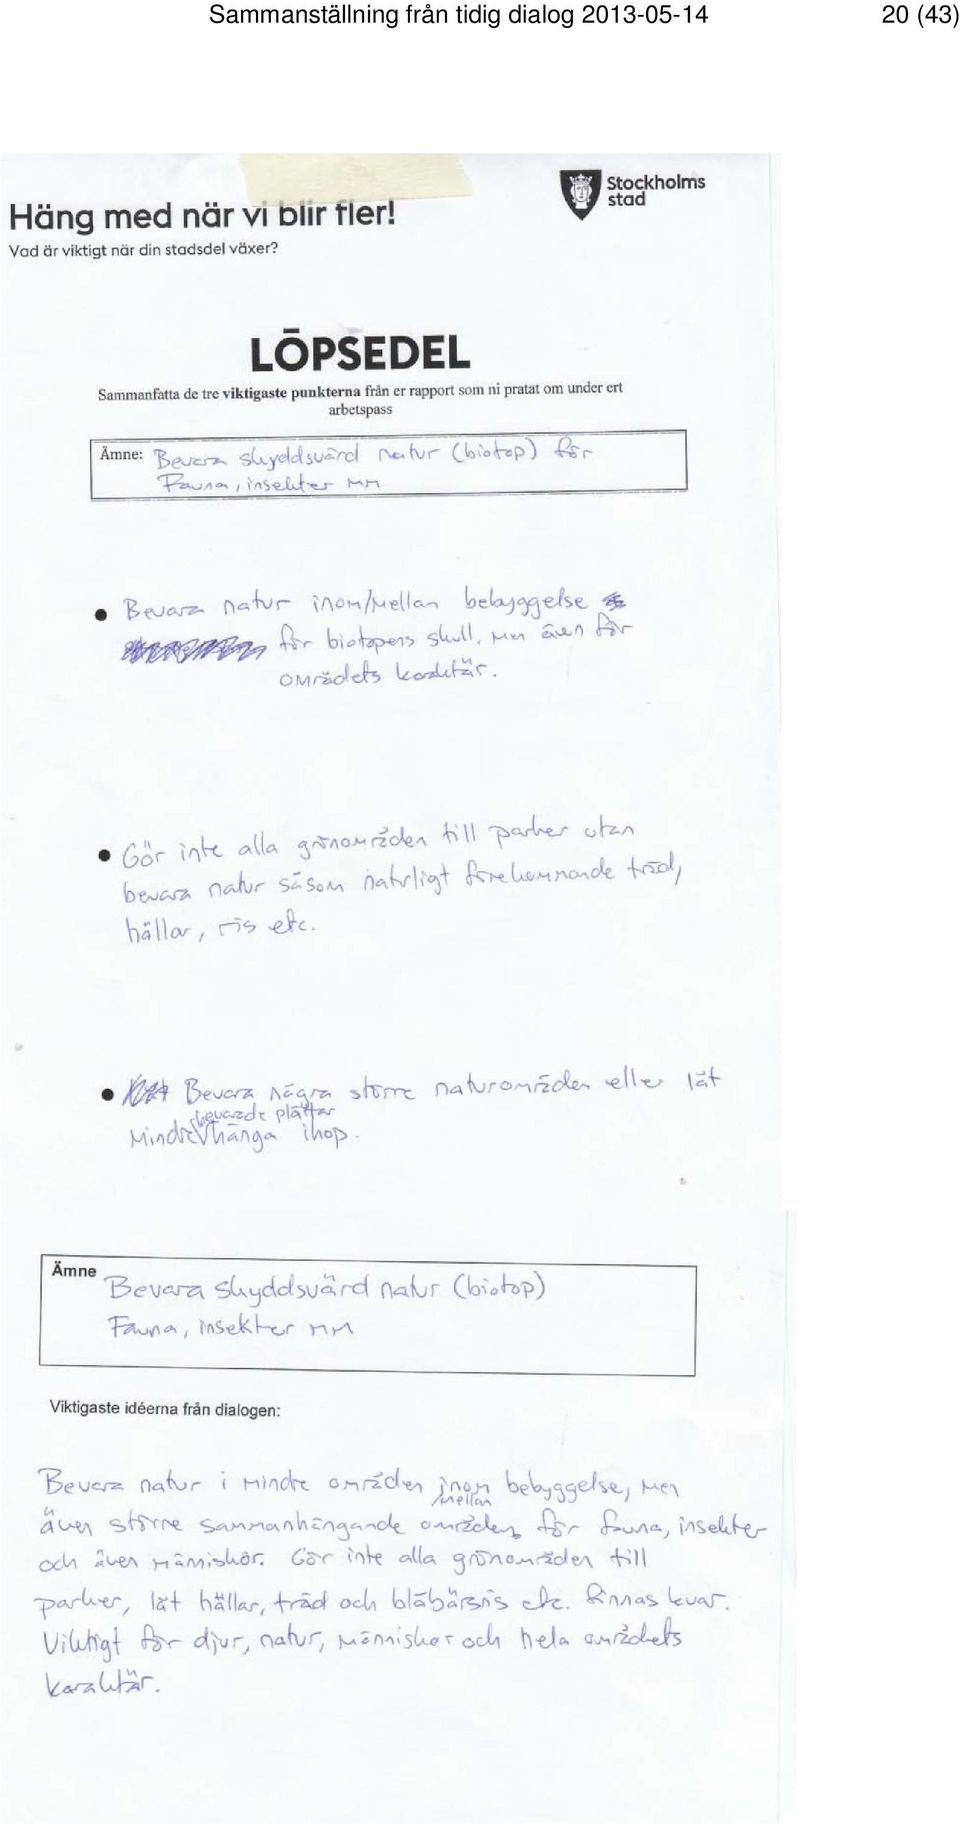 Sammanställning från tidig dialog 2013-05-14 20 (43)
Häng med när vi blir fler!
Stockholms
stad
Vad är viktigt när din stadsdel växer?
LÖPSEDEL
Sammanfatta de tre viktigaste punkterna från er rapport som ni pratat om under ert
arbetspass
Ämne: Bevara skyddsvärd natur (biotop) för
Fauna, insekter mm
• Bevara natur inom/mellan bebyggelse
för biotopens skull, men även för
områdets karaktär.
• Gör inte alla grönområden till parker utan
bevara natur såsom naturligt förekommande träd,
hällar, ris etc.
• Bevara några större naturområden eller låt
bevarade plättar
mindre hänga ihop.
Ämne Bevara skyddsvärd natur (biotop)
Fauna, insekter mm
Viktigaste idéerna från dialogen:
Bevara natur i mindre områden inom bebyggelse, men
/mellan
även större sammanhängande områden, för fauna, insekter
och även människor. Gör inte alla grönområden till
parker, låt hällar, träd och blåbärsris etc. finnas kvar.
Viktigt för djur, natur, människor och hela områdets
karaktär.